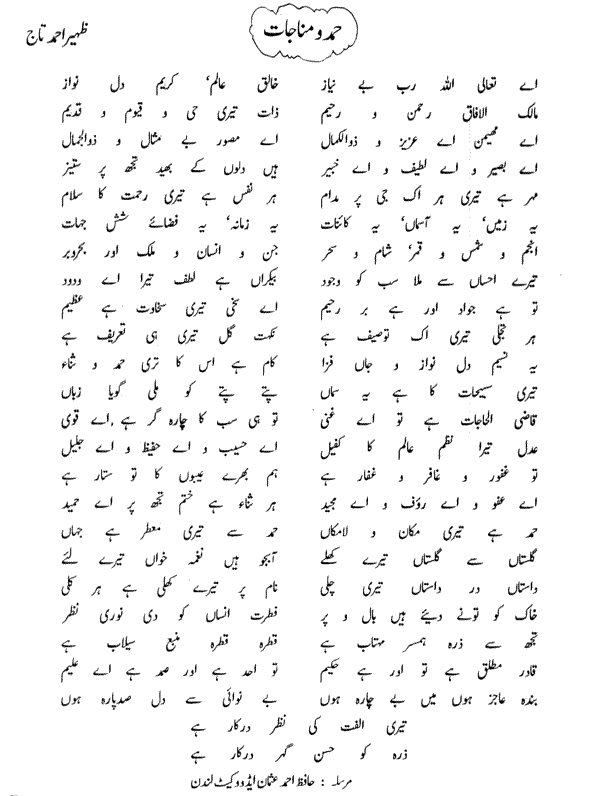 حمد و مناجات
ظہیر احمد تاج
اے تعالی اللہ رب بے نیاز خالق عالم، کریم دل نواز
مالک الافاق رحمن و رحیم ذات تیری حی و قیوم و قدیم
اے مھیمن اے عزیز و ذوالکمال اے مصور بے مثال و ذوالجمال
اے بصیر و اے لطیف و اے خبیر ہیں دلوں کے بھید تجھ پر
مہر ہے تیری ہر اک جی پر مدام ہر نفس ہے تیری رحمت کا سلام
یہ زمیں، یہ آسماں، یہ کائنات یہ زمانہ، یہ فضائے شش جہات
انجم و شمس و قمر، شام و سحر جن و انسان و ملک اور بحروبر
تیرے احساں سے ملا سب کو وجود بیکراں ہے لطف تیرا اے ودود
تو ہے جواد اور ہے بر رحیم اے سخی تیری سخاوت ہے عظیم
ہر تجلی تیری اک توصیف ہے نکہت گل تیری ہی تعریف ہے
یہ نسیم دل نواز و جاں فزا کام ہے اس کا تری حمد و ثناء
تیری سبیحات کا ہے یہ سماں پتے پتے کو ملی گویا زباں
قاضی الحاجات ہے تو اے غنی تو ہی سب کا چارہ گر ہے، اے قوی
عدل تیرا نظم عالم کا کفیل اے حسیب و اے حفیظ و اے جلیل
تو غفور و غافر و غفار ہے ہم بھرے عیبوں کا تو ستار ہے
اے عفو و اے رؤف و اے مجید ہر ثناء ہے ختم تجھ پر اے حمید
حمد ہے تیری مکان و لامکاں حمد سے تیری معطر ہے جہاں
گلستاں سے گلستاں تیرے کھلے آبجو ہیں نغمہ خواں تیرے لئے
داستاں در داستاں تیری چلی نام پر تیرے کھلی ہے ہر کلی
خاک کو تونے دیئے ہیں بال و پر فطرت انساں کو دی نوری نظر
تجھ سے ذرہ ہمسر مہتاب ہے قطرہ قطرہ منبع سیلاب ہے
قادر مطلق ہے تو اور ہے حکیم تو احد ہے اور صمد ہے اے علیم
بندہ عاجز ہوں میں بے چارہ ہوں بے نوائی سے دل صدپارہ ہوں
تیری الفت کی نظر درکار ہے
ذرہ کو حسن گہر درکار ہے
مرسلہ : حافظ احمد عثمان ایڈووکیٹ لندن